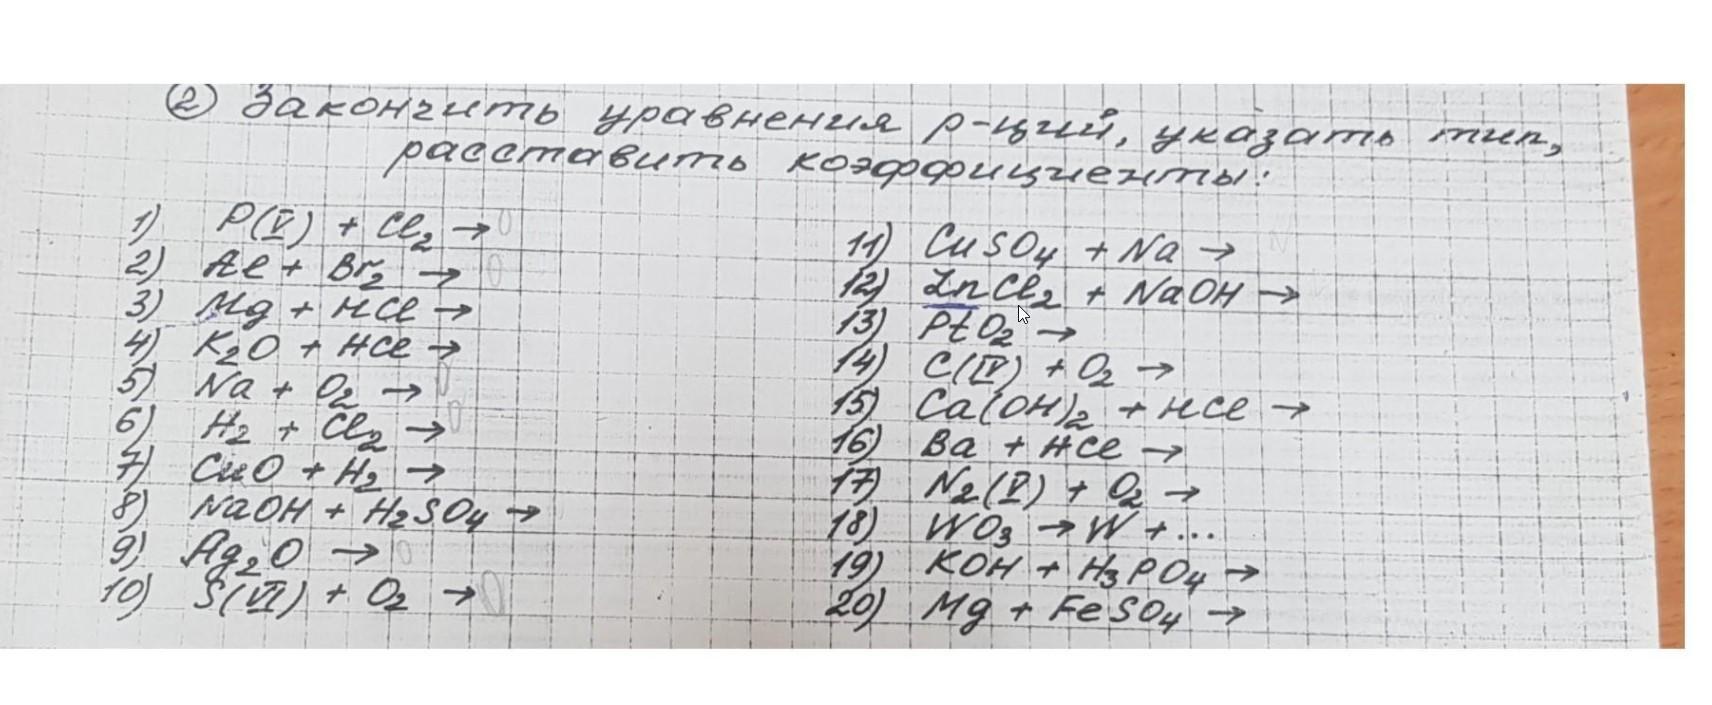 ② Закончить уравнения р-ций, указать тип,
расставить коэффициенты:
1) P(V) + Cl₂ →
2) Al + Br₂ →
3) Mg + HCl →
4) K₂O + HCl →
5) Na + O₂ →
6) H₂ + Cl₂ →
7) CuO + H₂ →
8) NaOH + H₂SO₄ →
9) Ag₂O →
10) S(VI) + O₂ →
11) CuSO₄ + Na →
12) ZnCl₂ + NaOH →
13) PtO₂ →
14) C(IV) + O₂ →
15) Ca(OH)₂ + HCl →
16) Ba + HCl →
17) N₂(V) + O₂ →
18) WO₃ → W + ...
19) KOH + H₃PO₄ →
20) Mg + FeSO₄ →